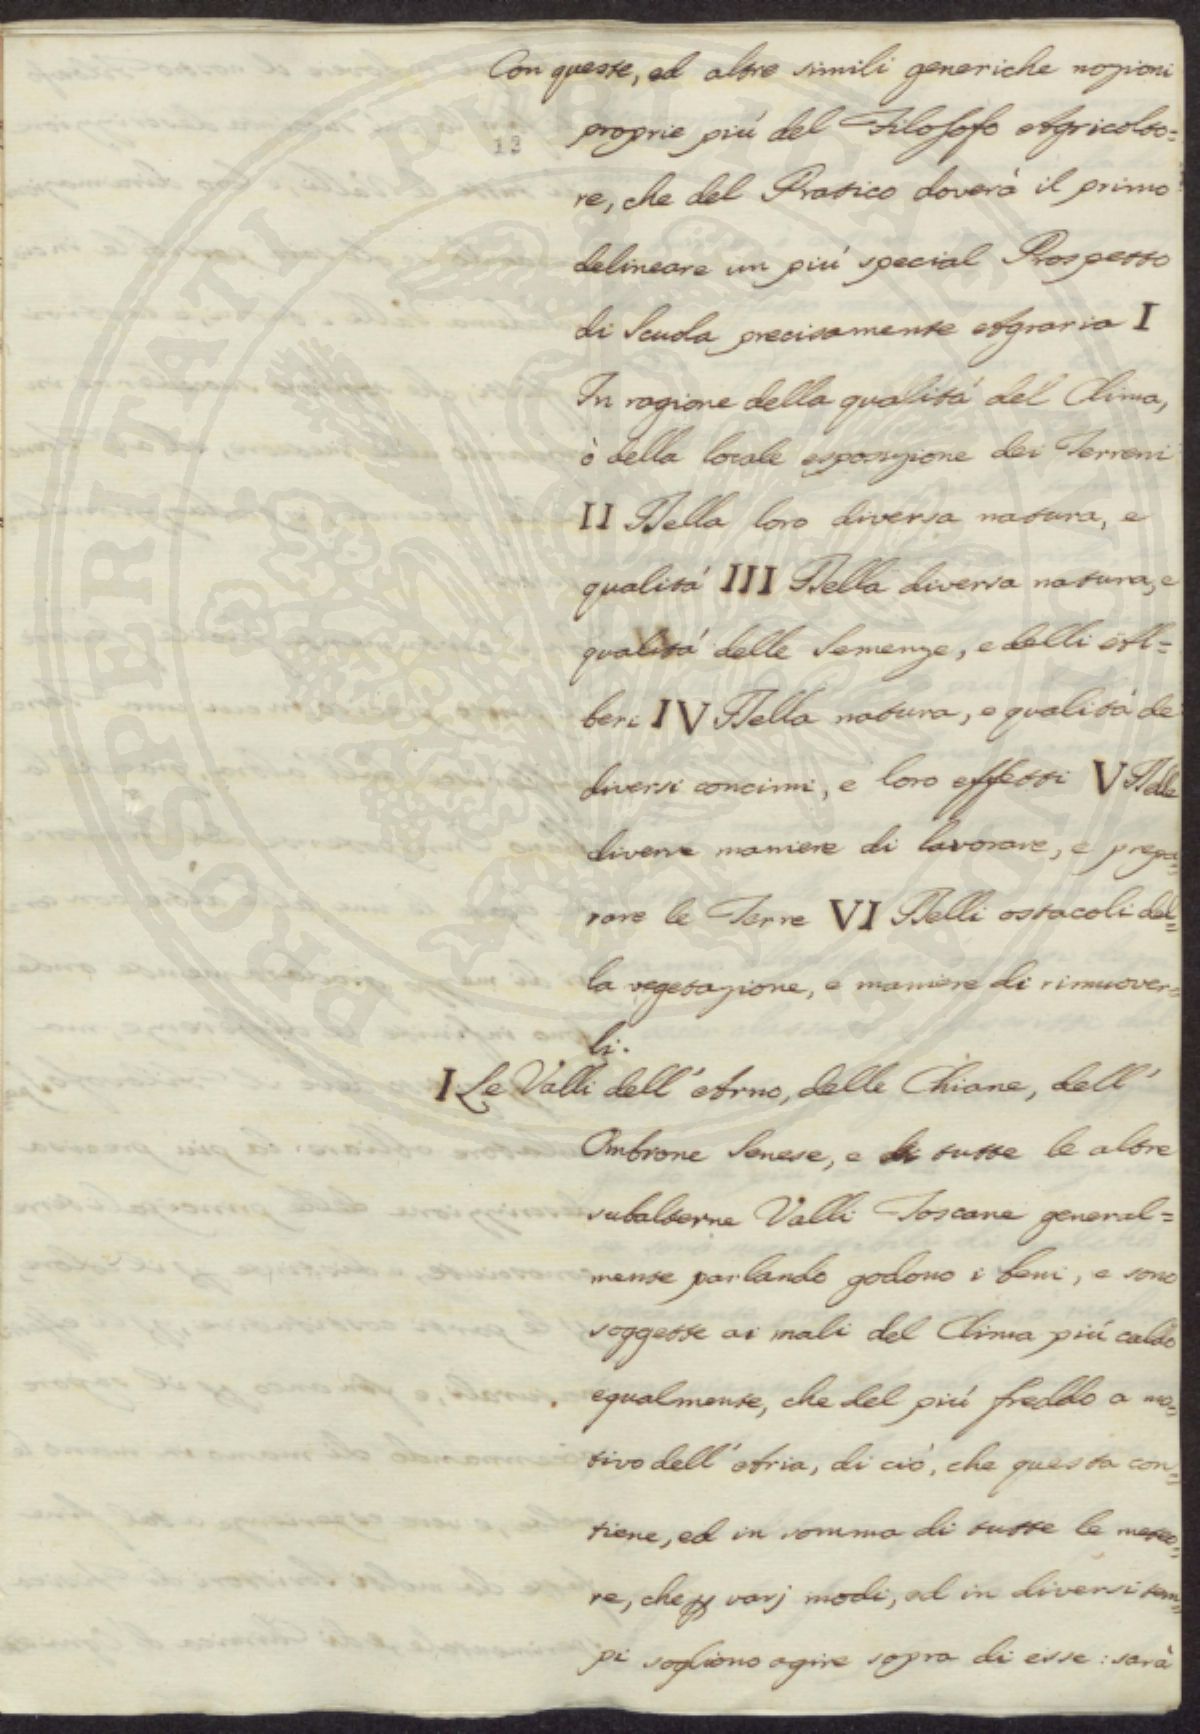 Con queste, ed altre simili generiche nozioni
13
proprie piú del Filosofo Agricolto=
re, che del Pratico doverà il primo
delineare un piú special Prospetto
di Scuola precisamente Agraria I
In ragione della qualitá del Clima,
ò della locale esposizione dei Terreni
II Della loro diversa natura, e
qualitá III Della diversa natura, e
qualitá delle Semenze, e delli Al=
beri IV Della natura, e qualitá de
diversi concimi, e loro effetti V Delle
diverse maniere di lavorare, e prepa=
rare le Terre VI Delli ostacoli del=
la vegetazione, e maniere di rimuover=
li.
I Le Valli dell' Arno, delle Chiane, dell'
Ombrone Senese, e di tutte le altre
subalterne Valli Toscane general=
mente parlando godono i beni, e sono
soggette ai mali del Clima piú caldo
egualmente, che del piú freddo a mo=
tivo dell' Aria, di ciò, che questa con=
tiene, ed in somma di tutte le meteo=
re, che varj modi, ed in diversi tem=
pi sogliono agire sopra di esse: sarà
PROSPERITATI PUBLICAE AUGENDAE